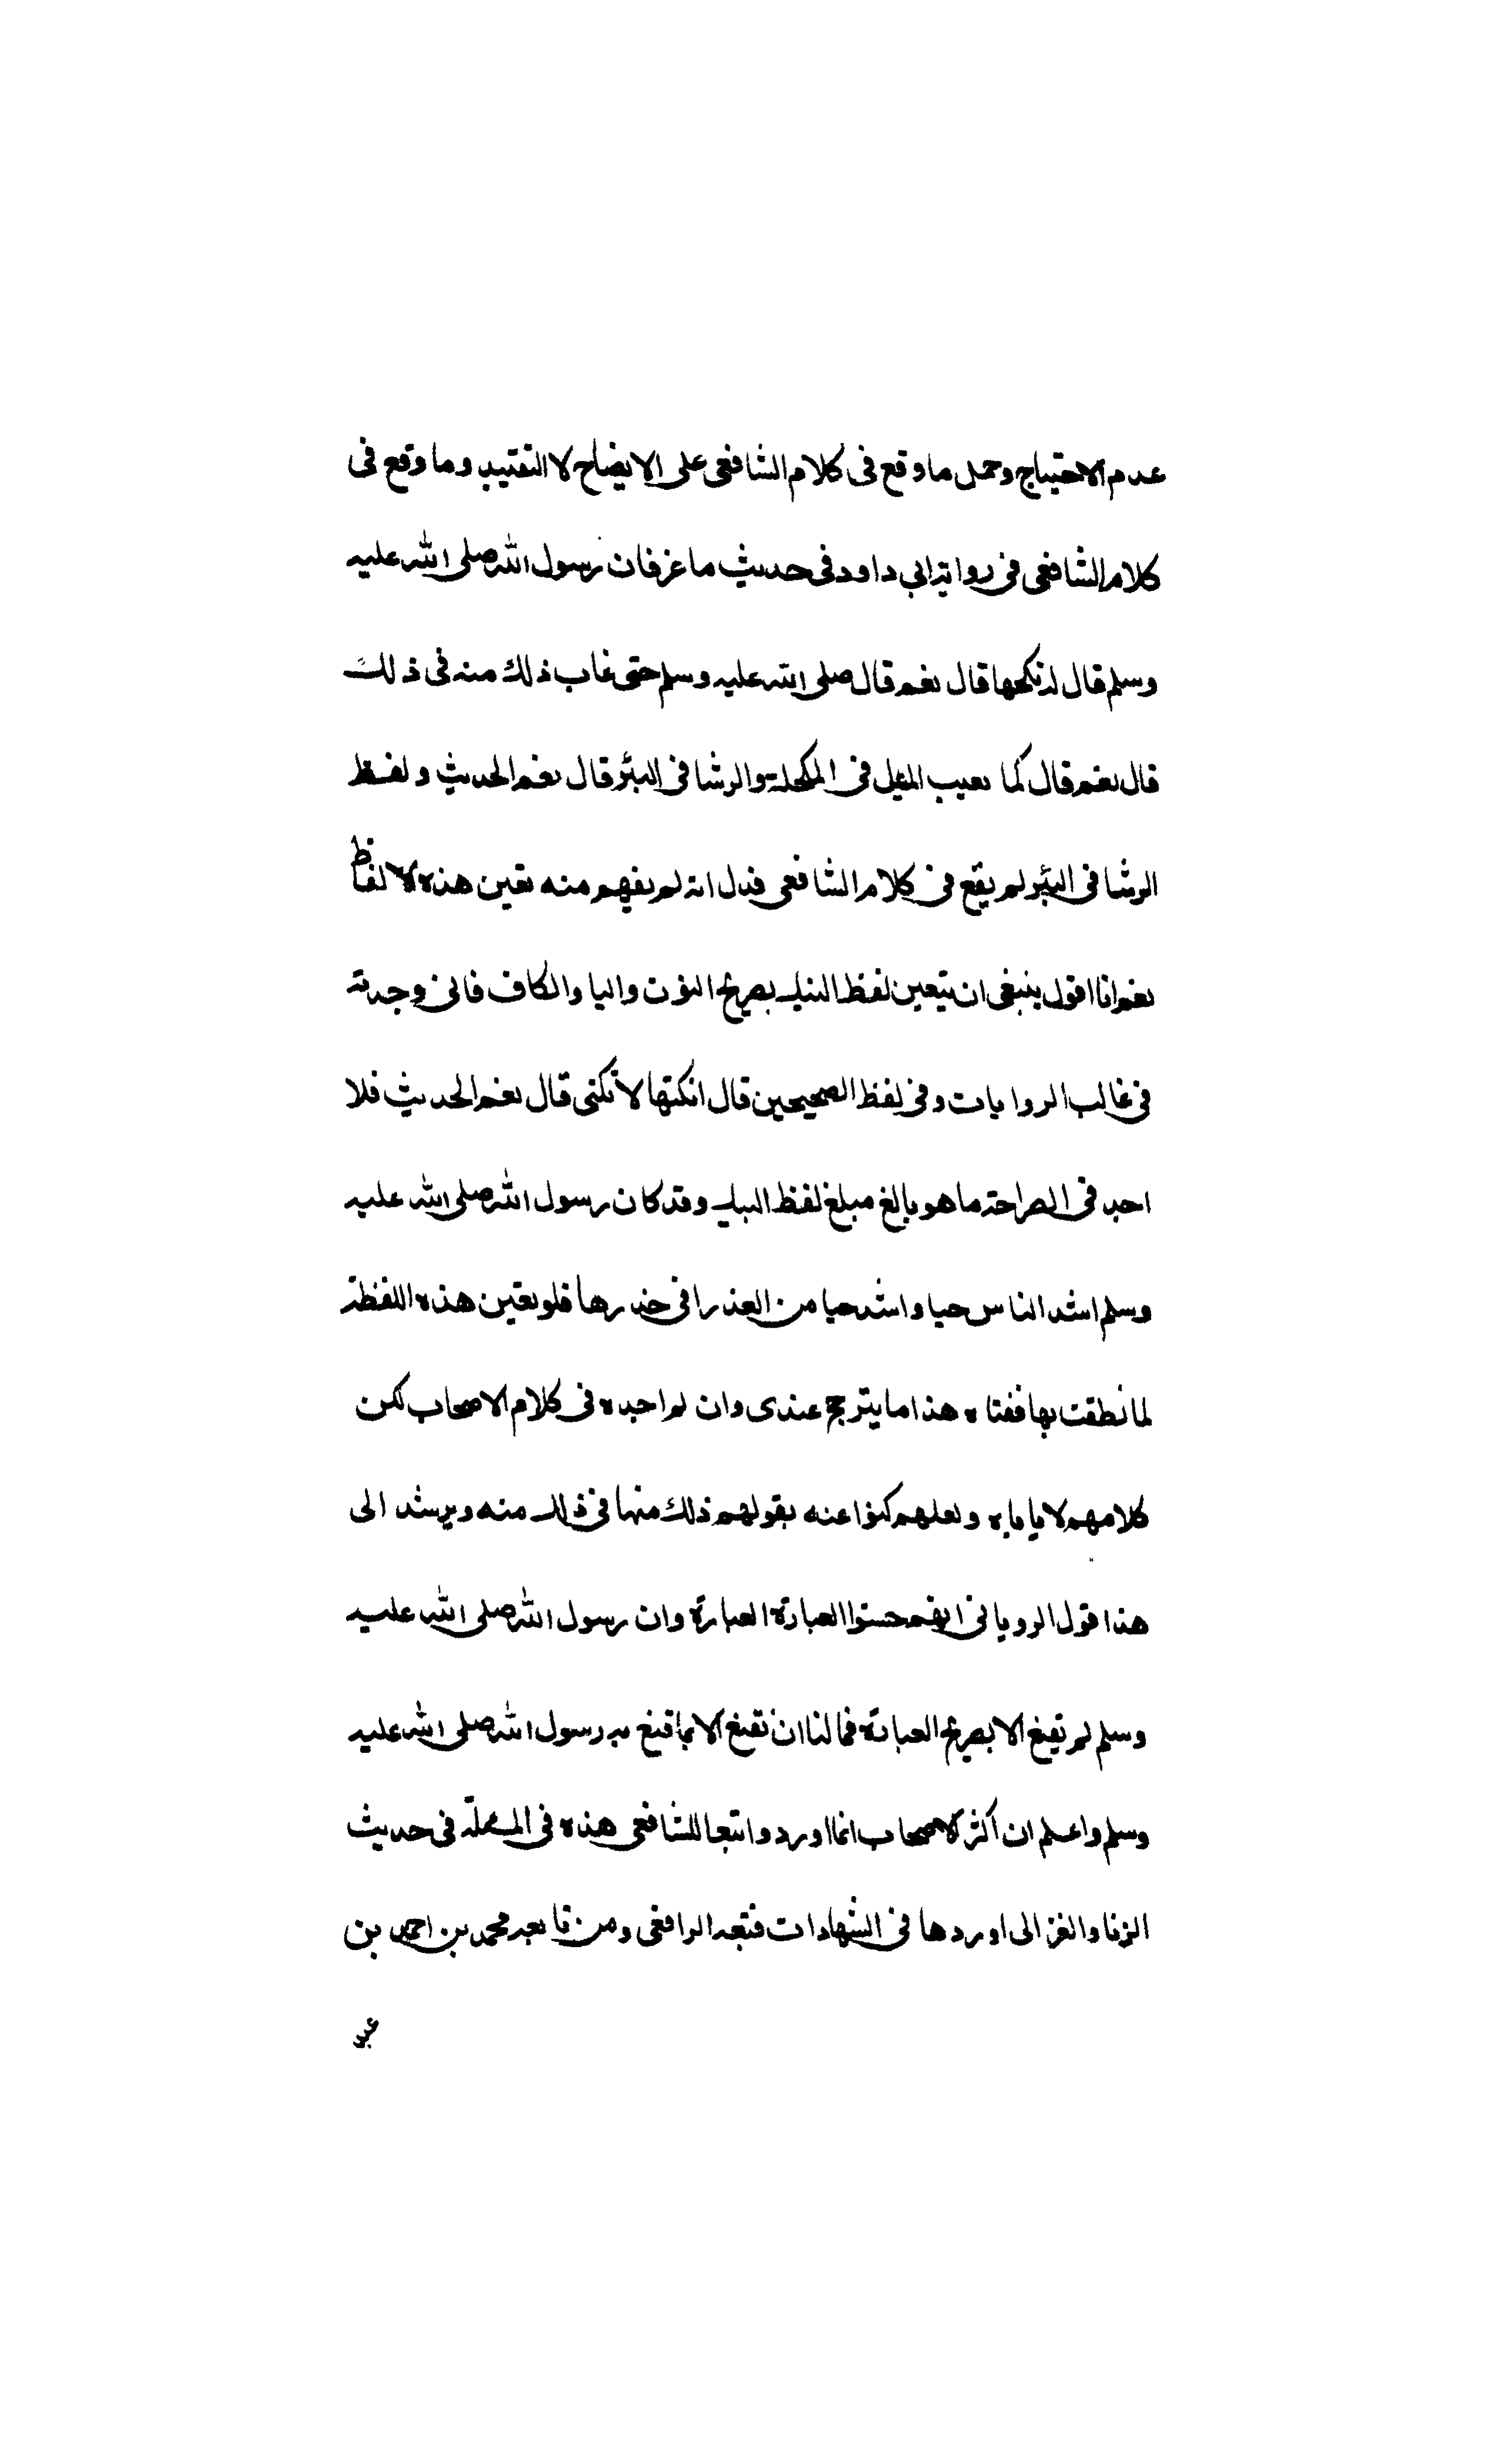 عدم الاحتياج وحمل ما وقع فى كلام الشافعى على الايضاح لا التقييد وما وقع فى
كلام الشافعى فى رواية ابى داود فى حديث ماعز فان رسول الله صلى الله عليه
وسلم قال له نكحها قال نعم قال صلى الله عليه وسلم حتى غاب ذلك منه فى ذلك
قال نعم قال كما يغيب الميل فى المكحلة والرشا فى البئر قال نعم الحديث ولفظ
الرشا فى البئر لم يقع فى كلام الشافعى فدل انه لم يفهم منه تعين هذه الالفاظ
نعم انا اقول ينبغى ان يتعين لفظ النيك بصريح النون واليا والكاف فانى وجدته
فى غالب الروايات وفى لفظ الصحيحين قال انكتها لا تكنى قال نعم الحديث فلا
احد فى الصراحة ما هو بالغ مبلغ لفظ النيك وقد كان رسول الله صلى الله عليه
وسلم اشد الناس حيا واشد حيا من العذرا فى خدرها فلو تعين هذه اللفظة
لما نطقت بها فقتاه هذا ما يترجح عندى وان لم اجده فى كلام الاصحاب لكن
كلامهم لا ياباه ولعلهم كنوا عنه بقولهم ذلك منها فى ذلك منه ويرشد الى
هذا قول الرويانى انهم حسنوا العبارة العبارة وان رسول الله صلى الله عليه
وسلم لم يقنع الا بصريح العبارة فما لنا ان نقنع الا بما قنع به رسول الله صلى الله عليه
وسلم واعلم ان اكثر الاصحاب انما اوردوا تبعا للشافعى هذه فى المسئلة فى حديث
الزنا والغزالى اوردها فى الشهادات فتبعه الرافعى ومن تابعه محمد بن احمد بن
عبد